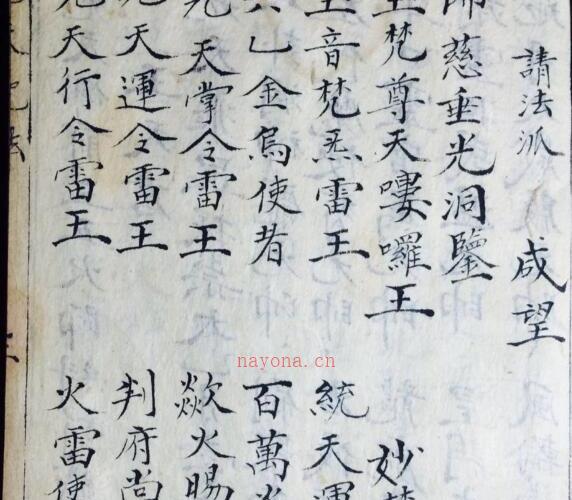 請法派 咸望
師慈垂光洞鑒
王梵尊天嘍囉王 妙
王音梵炁雷王 統天運
乙金烏使者 百萬
天掌令雷王 歘火賜
天運令雷王 判府尚
天行令雷王 火雷使
nayona.cn